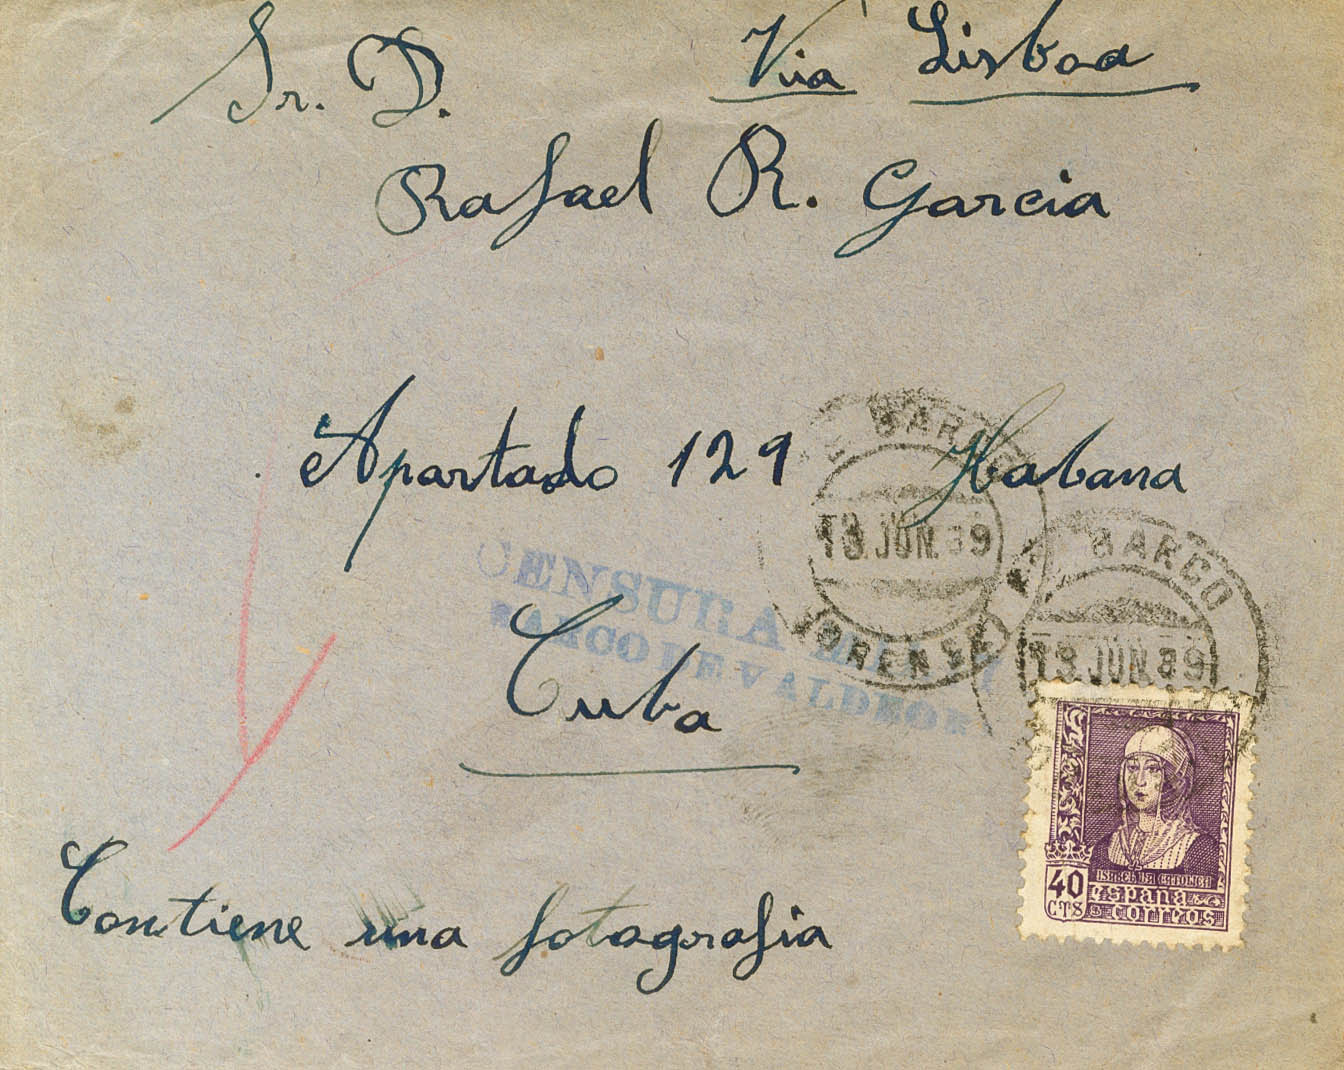 Via Lisboa
Sr. D.
Rafael R. Garcia
Apartado 129 Habana
Cuba
Contiene una fotografia
BARCO
JUN. 39
(ORENSE)
BARCO
JUN. 39
CENSURA
BARCO DE VALDEOR
ISABEL LA CATOLICA
40 CTS
españa
correos